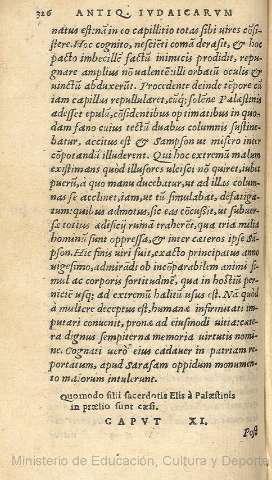 326 ANTIQ. IVDAICARVM
natus est: nā in eo capillitio totas sibi vires cōsi-
stere. Hoc cognito, nescienti coma derasit, & hoc
pacto imbecille factū inimicis prodidit, repu-
gnare amplius nō valentē: illi orbatū oculis &
uinctū abduxerūt. Procedente deinde tēpore cū
iam capillus repullularet, eüq; solēne Palæstinis
adesset epulū, cōsidentibus optimatibus in quo-
dam fano cuius tectū duabus columnis sustine-
batur, accitus est & Sampson ut misero inter
cōpotandū illuderent. Qui hoc extremū malum
existimans quòd illusores ulcisci nō quiret, iubet
puerū, à quo manu ducebatur, ut ad illas colum-
nas se acclinet, iam, ut tū simulabat, defatiga-
tum: quibus admotus, sic eas cōcussit, ut subuer-
sa totius ædificij ruina traheret, qua tria milia
hominū sunt oppressa, & inter cæteros ipse Sā-
pson. Hic finis uiri fuit, exacto principatus anno
uigesimo, admirādi ob incōparabilem animi si-
mul ac corporis fortitudinē, qua in hostiū per-
niciē usq; ad extremū halitū usus est. Nā quòd
à muliere deceptus est, humanæ infirmitati im-
putari conuenit, pronæ ad eiusmodi uitia: cæte-
ra dignus sempiterna memoria uirtutis nomi-
ne. Cognati uerò eius cadauer in patriam re-
portatum, apud Sarasam oppidum monumen-
to maiorum intulerunt.
Quomodo filii sacerdotis Elis à Palæstinis
in prælio sunt cæsi.
CAPVT XI.
Post
Ministerio de Educación, Cultura y Deporte